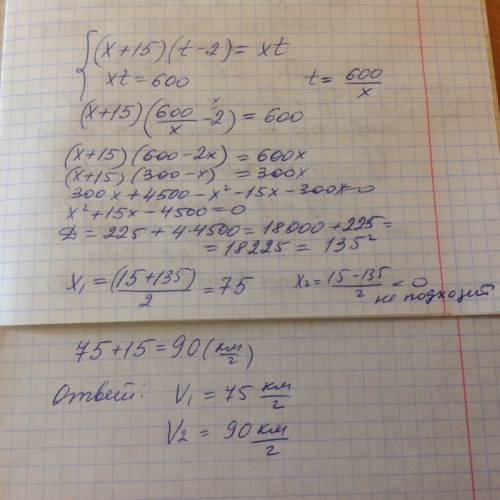 (x+15)(t-2)=xt
xt=600 t=600/x
(x+15)(600/x-2)=600
(x+15)(600-2x)=600x
(x+15)(300-x)=300x
300x+4500-x²-15x-300x=0
x²+15x-4500=0
D=225+4·4500=18000+225=
=18225=135²
x₁=(15+135)/2=75 x₂=15-135/2<0
не подходит
75+15=90(км/г)
Ответ: V₁=75 км/г
V₂=90 км/г